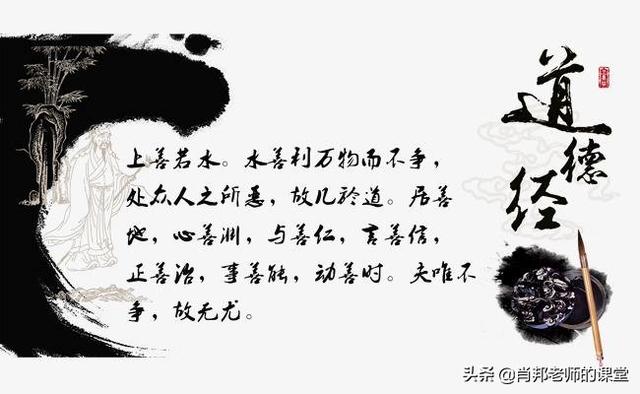 上善若水。水善利万物而不争，
处众人之所恶，故几於道。居善
地，心善渊，与善仁，言善信，
正善治，事善能，动善时。夫唯不
争，故无尤。
道德经
头条 @肖邦老师的课堂